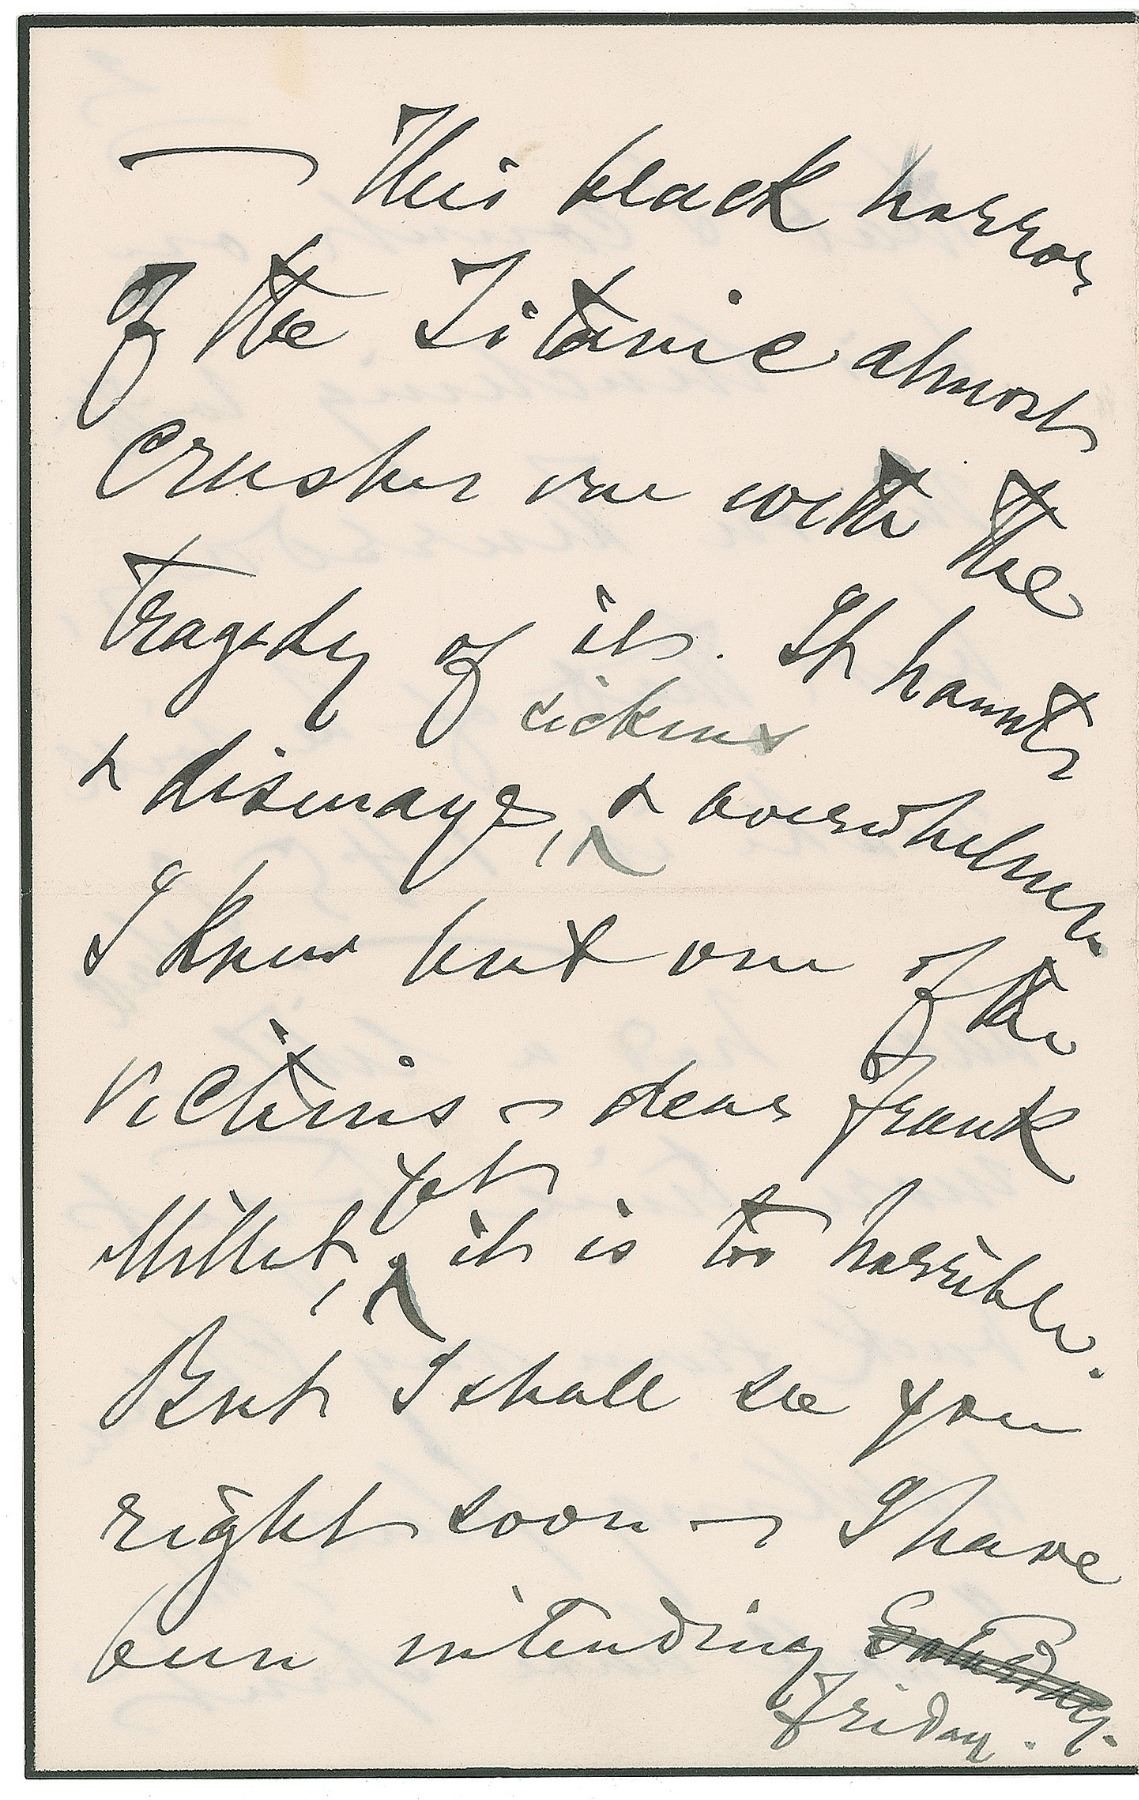 — This black horror
of the Titanic almost
crushes one with the
tragedy of it. It haunts
sickens
& dismays, & overwhelms.
I knew but one of the
victims — dear Frank
yet
Millet, it is too horrible.
But I shall see you
right soon — I have
been intending Saturday.
Friday.